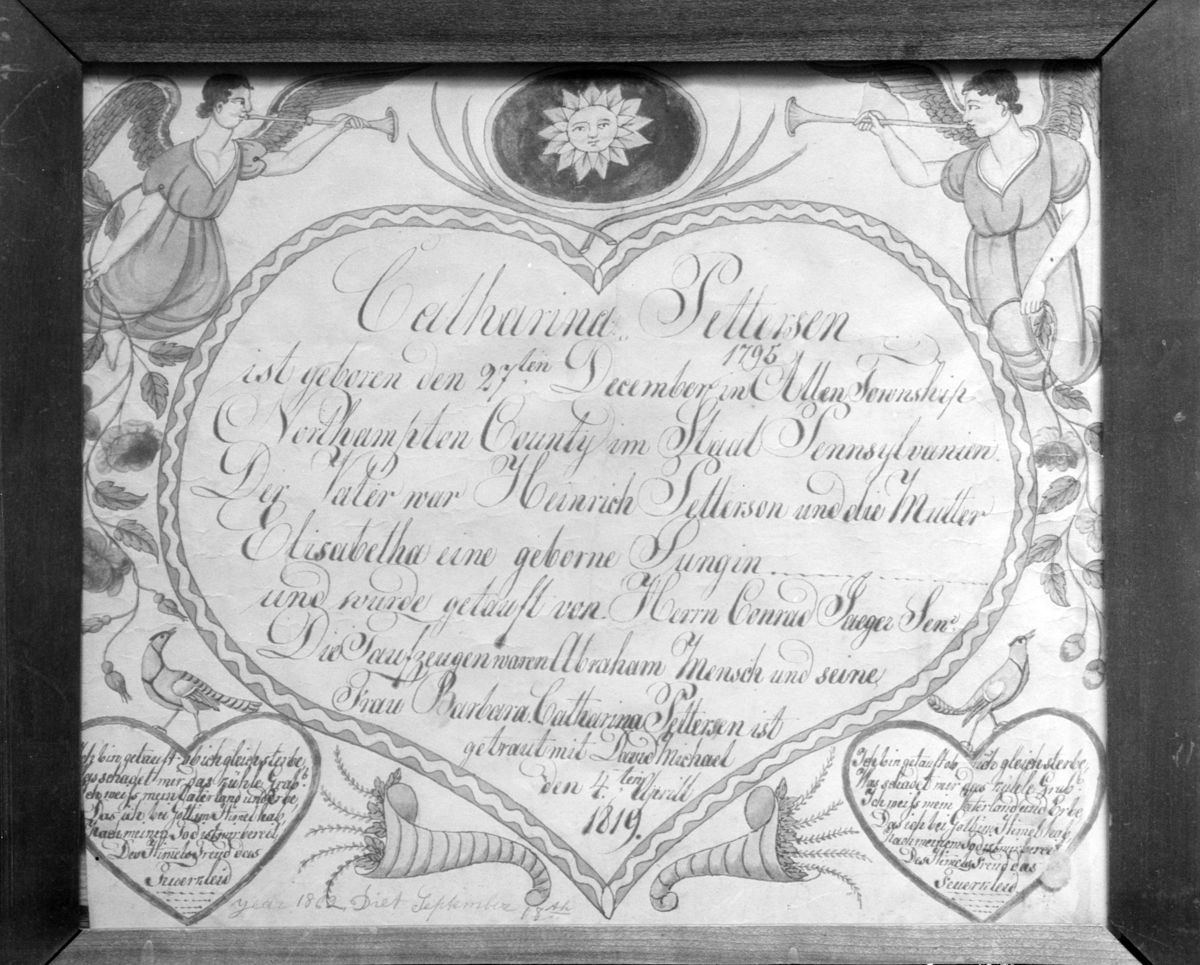 Catharina Pettersen
1795
ist geboren den 27.ten December, in Allen Township
Northampton County im Staat Pennsylvanien.
Der Vater war Heinrich Petterson und die Mutter
Elisabetha eine geborne Jungin
und wurde getauft von Herrn Conrad Jaeger Senr.
Die Taufzeugen waren Abraham Mensch und seine
Frau Barbara. Catharina Pettersen ist
getraut mit David Michael
den 4.ten Aprill
1819.
Ich bin getauft ob ich gleich sterbe
Was schadet mir das kühle Grab
Ich weiss mein Vaterland und Erbe
Das ich bei Gott im Himel hab
Nach meinem Tod ist mir bereit
Des Himels Freud das
Feuerkleid
Ich bin getauft ob ich gleich sterbe
Was schadet mir das kühle Grab
Ich weiss mein Vaterland und Erbe
Das ich bei Gott im Himel hab
Nach meinem Tod ist mir bereit
Des Himels Freud das
Feuerkleid
year 1862 Diet September 18th